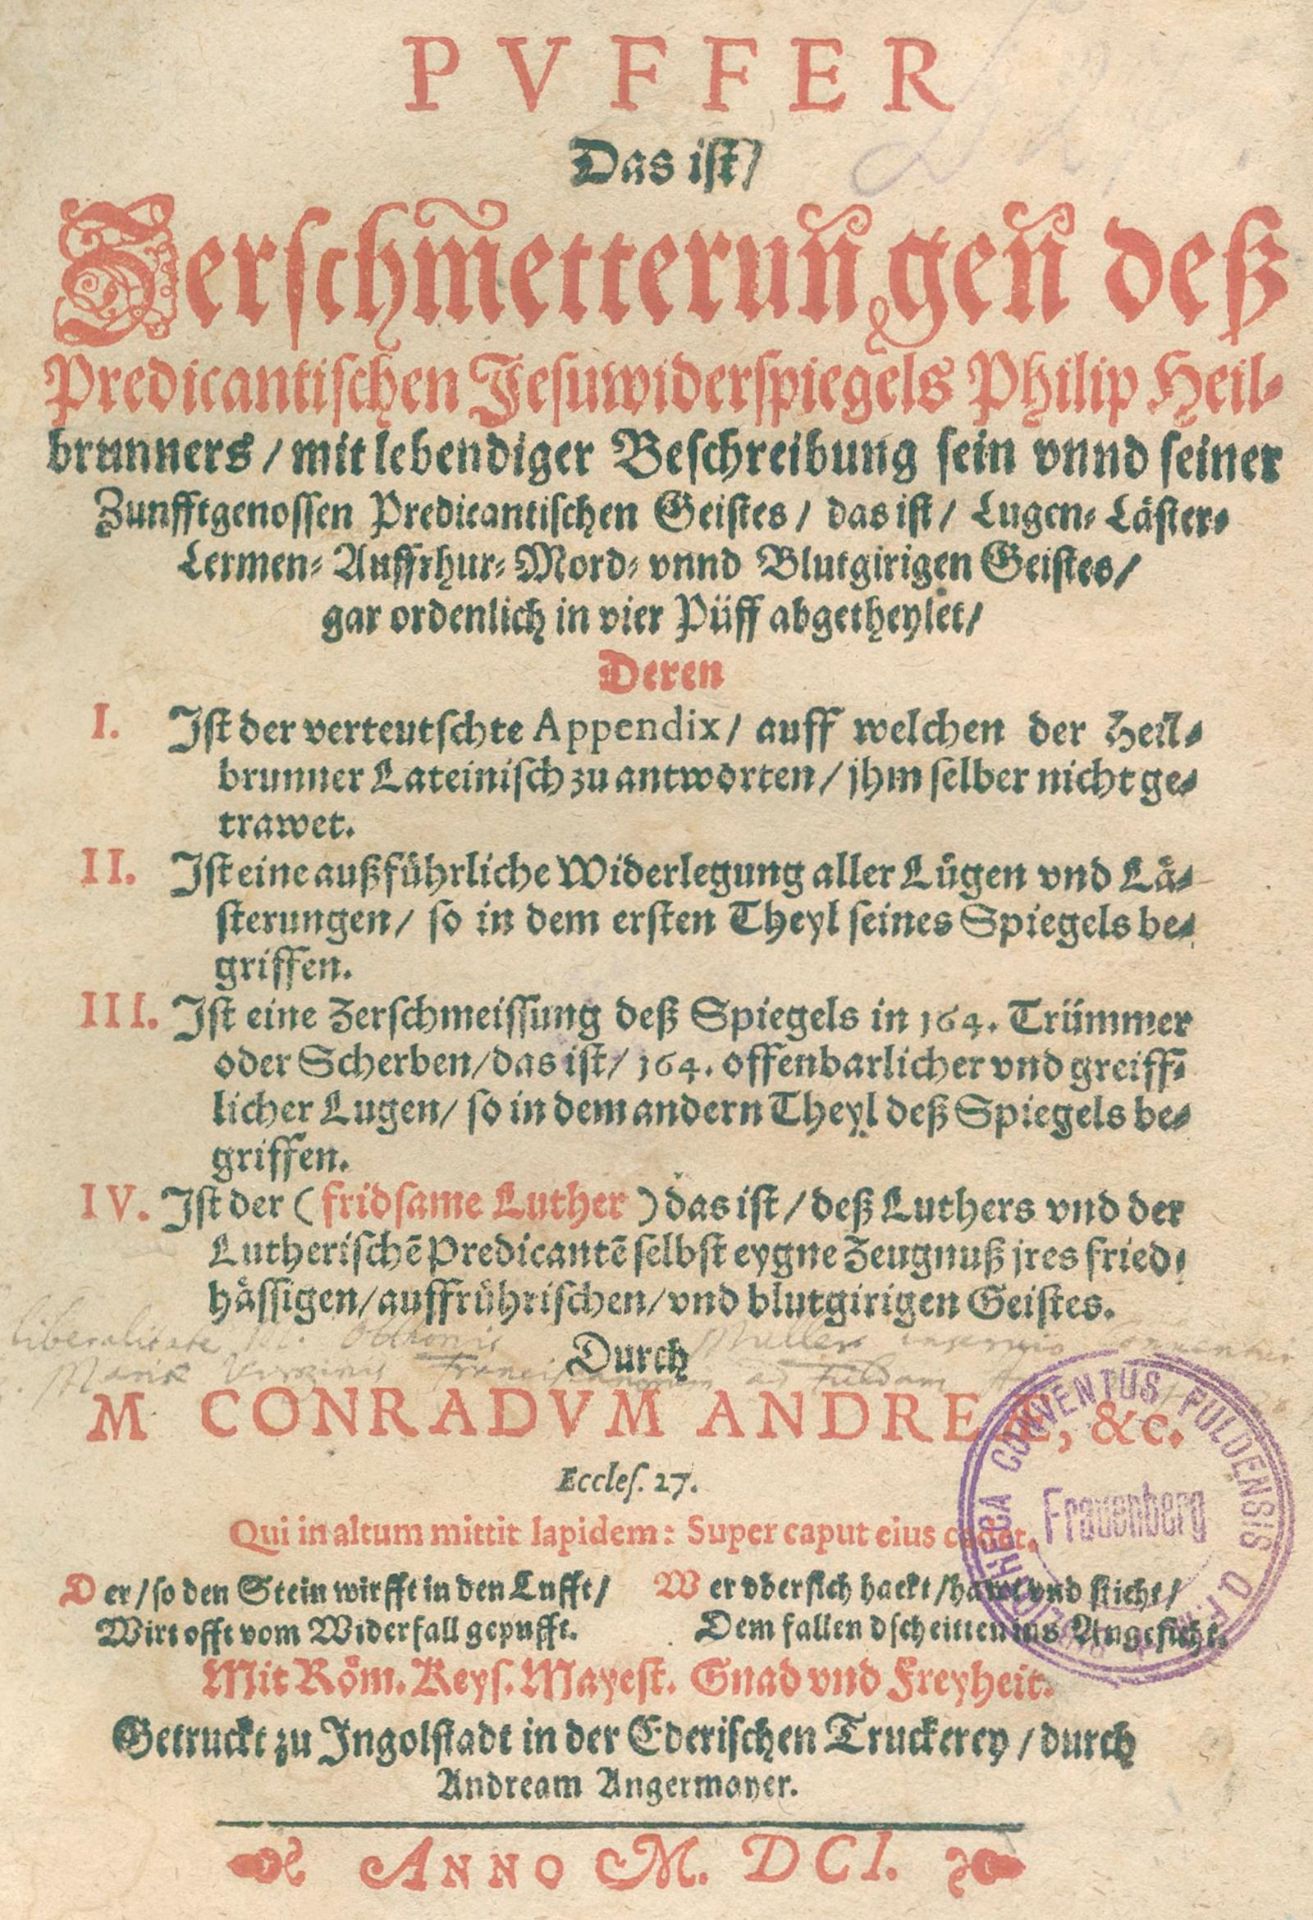 PVFFER
Das ist/
Zerschm̃etteruñgeñ deß
Predicantischen Jesuwiderspiegels Philip Heil-
brunners/ mit lebendiger Beschreibung sein vnnd seiner
Zunfftgenossen Predicantischen Geistes/ das ist/ Lugen- Läster-
Lermen- Auffrhur- Mord- vnnd Blutgirigen Geistes/
gar ordenlich in vier Püff abgetheylet/
Deren
I. Ist der verteutschte Appendix/ auff welchen der Heil-
brunner Lateinisch zu antworten/ jhm selber nicht ge-
trawet.
II. Ist eine außführliche Widerlegung aller Lügen vnd Lä-
sterungen/ so in dem ersten Theyl seines Spiegels be-
griffen.
III. Ist eine Zerschmeissung deß Spiegels in 164. Trümmer
oder Scherben/ das ist/ 164. offenbarlicher vnd greiff-
licher Lugen/ so in dem andern Theyl deß Spiegels be-
griffen.
IV. Ist der (fridsame Luther) das ist/ deß Luthers vnd der
Lutherischẽ Predicantẽ selbst eygne Zeugnuß jres fried-
hässigen/ auffrührischen/ vnd blutgirigen Geistes.
liberalitate M. Othonis Müllers
Durch
Mariæ Virginis Franciscanorum ad Fuldam
M CONRADVM ANDREÆ, &c.
Eccles. 27.
Qui in altum mittit lapidem: Super caput eius cadet.
Der/ so den Stein wirfft in den Lufft/
Wirt offt vom Widerfall gepufft.
Wer vbersich hackt/ hawt vnd sticht/
Dem fallen dscheitten ins Angesicht.
Mit Röm. Keys. Mayest. Gnad vnd Freyheit.
Getruckt zu Ingolstadt in der Ederischen Truckerey/ durch
Andream Angermayer.
ANNO M. DCI.
BIBLIOTHECA CONVENTUS FULDENSIS O.F.M.
Frauenberg